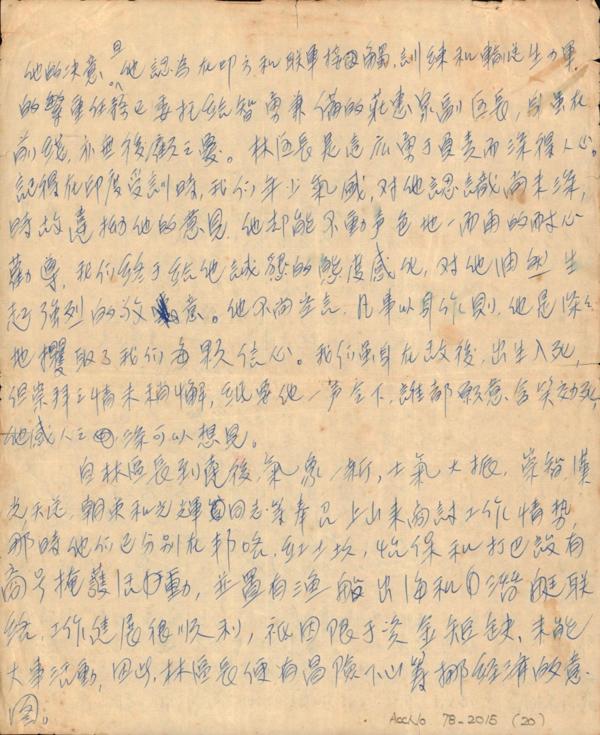 他的决意,且他認為在印方和联軍接觸,訓練和輸送生力軍
的繁重任務已委托給智勇兼備的莊惠泉副區長,自身在
前线,亦無後顧之憂。林區長是這広勇于負責而深得人心。
記得在印度受訓時,我们年少氣盛,对他認識尚未深,
時故違拗他的意見,他却能不動声色地一而再的耐心
勸導,我们終于給他誠懇的態度感化,对他油然生
起強烈的敬意。他不尚空言,凡事以身作則,他是深深
地攫取了我们每顆信心。我们虽身在敌後,出生入死,
但崇拜之情未稍懈,祇要他一声令下,誰都願意含笑効死,
他感人之深可以想見。
自林區長到麀後,氣象一新,士氣大振,崇智,漢
光,天送,朝英和光輝同志等奉召上山来商討工作情势,
那時他们已分别在邦咯,紅土坎,怡保和打巴設有
商号掩護活動,並置有漁船出海和潛艇联
絡,工作進展很順利,祇因限于资金短缺,未能
大事活動,因此,林區長便有冒險下山籌挪經濟的意
图。
Acc No 78-2015 (20)